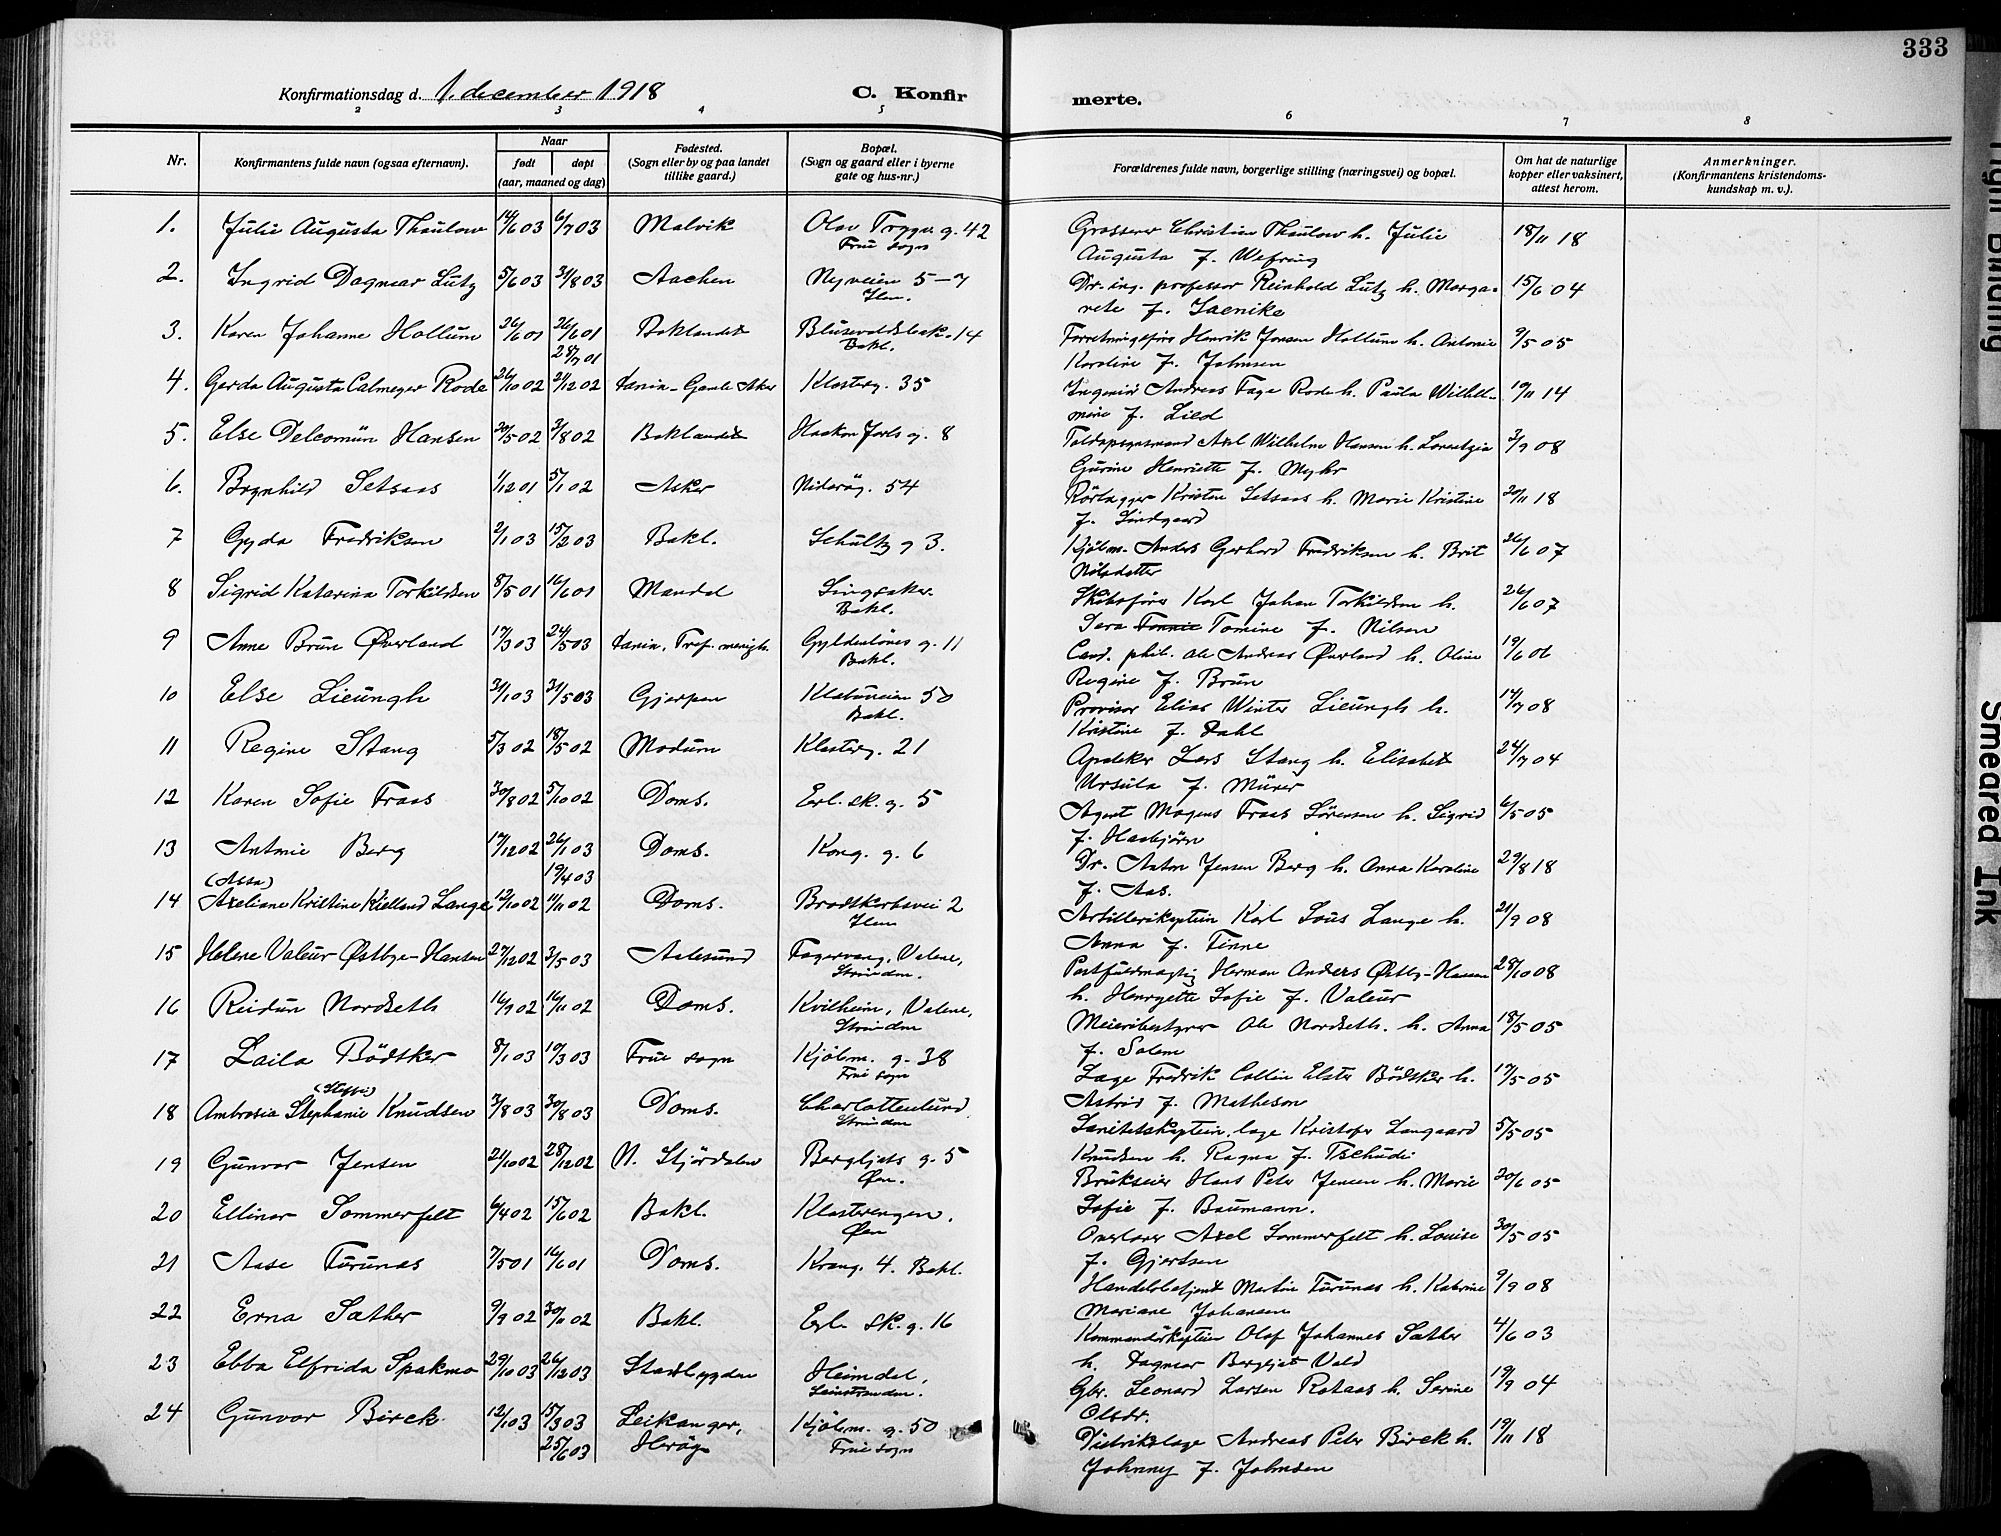 333
Konfirmationsdag d. 1. december 1918 C. Konfirmerte.
2 3 4 5 6 7 8
Nr. Konfirmantens fulde navn (ogsaa efternavn). Naar født døpt (aar, maaned og dag) Fødested. (Sogn eller by og paa landet tillike gaard.) Bopæl. (Sogn og gaard eller i byerne gate og hus-nr.) Forældrenes fulde navn, borgerlige stilling (næringsvei) og bopæl. Om hat de naturlige kopper eller vaksinert, attest herom. Anmerkninger. (Konfirmantens kristendomskundskap m. v.).
1. Julie Augusta Thaulow 14/6 03 6/7 03 Malvik Olav Trygv. g. 42 Grosserer Christian Thaulow h. Julie 18/11 18
Frue sogn Augusta f. Wefring
2. Ingrid Dagmar Lutz 5/6 03 31/8 03 Aachen Nyveien 5-7 Dr. ing. professor Reinhold Lutz h. Marga- 15/6 04
Ilen. rete f. Jaenike
3. Karen Johanne Hollum 26/6 01 26/6 01 Baklandet 14 Forretningsfører Henrik Jensen Hollum h. Antonie 9/5 05
28/7 01 Bakl. Karoline f. Johnsen
4. Gerda Augusta Calmeyer Rode 26/10 02 21/12 02 Xania - Gamle Aker Klosterg. 35 Ingeniør Andreas Tage Rode h. Paula Wilhel- 19/11 14
mine f. Lied
5. Else Delcomün Hansen 20/5 02 3/8 02 Baklandet Haakon Jarls g. 8 Toldopsynsmand Axel Wilhelm Hansen h. Lorentzia 3/9 08
Gurine Henriette f. Myhr
6. Bognhild Setsaas 1/12 01 5/1 02 Asker Nidarøg. 54 Rörlægger Kristen Setsaas h. Marie Kristine 20/11 18
f. Lindgaard
7 Gyda Fredriksen 2/1 03 15/2 03 Bakl. Schultz g 3. Kjøbm. Anders Gerhard Fredriksen h. Brit 26/6 07
Nilsdatter
8 Sigrid Katarina Torkildsen 8/5 01 16/6 01 Mandal Singsaker. Skibsfører Karl Johan Torkildsen h. 26/6 07
Bakl. Sara Tomine f. Nilsen
9 Anne Brun Øverland 17/3 03 24/5 03 Xania, Tref. menigh. Gyldenløves g. 11 Cand. phil. Ole Andreas Øverland h. Oline 19/6 06
Bakl. Regine f. Brun
10 Else Lieungh 31/1 03 31/5 03 Gjerpen Klæbuveien 50 Provisor Elias Winter Lieungh h. 14/7 08
Bakl. Kristine f. Dahl
11 Regine Stang 5/3 02 18/5 02 Modum Klosterg. 21 Apoteker Lars Stang h. Elisabet 24/7 04
Ursula f. Mürer
12 Karen Sofie Fraas 30/8 02 5/10 02 Doms. Erl. sk. g. 5 Agent Mogens Fraas Sørensen h. Sigrid 6/5 05
f. Hasbjørn
13 Antonie Berg 17/12 02 26/1 03 Doms. Kong. g. 6 Dr. Anton Jensen Berg h. Anna Karoline 29/8 18
19/4 03 f. Aas.
14 Axeliane Kristine Kielland Lange 12/10 02 11/11 02 Doms. Brodtkorbsvei 2 Artillerikaptein Karl Lous Lange h. 21/9 08
Ilen Anna f. Finne
15 Helene Valeur Østbye-Hansen 27/12 02 3/5 03 Aalesund Fagervang, Valene, Postfuldmægtig Herman Anders Østby-Hansen 28/10 08
Strinden. h. Henryette Sofie f. Valeur
16 Reidun Nordseth 16/9 02 16/11 02 Doms. Kvilheim, Valene, Meieribestyrer Ole Nordseth. h. Anna 18/5 05
Strinden f. Solem
17 Laila Bödtker 8/1 03 19/3 03 Frue sogn Kjøbm. g. 38 Læge Fredrik Collin Elster Bödtker h. 17/5 05
Frue sogn Astrid f. Matheson
18 Ambrosia Stephanie (Steffi) Knudsen 3/8 03 30/8 03 Doms. Charlottenlund Sanitetskaptein, læge Kristofer Langaard 5/5 05
Strinden Knudsen h. Ragna f. Tschudi
19 Gunvor Jensen 21/10 02 28/12 02 N. Stjørdalen Bergljots g. 5 Brukseier Hans Peter Jensen h. Marie 30/6 05
Øen. Sofie f. Baumann.
20 Ellinor Sommerfelt 6/4 02 15/6 02 Bakl. Klosterengen, Overlærer Axel Sommerfelt h. Louise 30/5 05
Øen f. Gjertsen
21 Aase Furunes 7/5 01 16/6 01 Doms. 4. Bakl. Handelsbetjent Martin Furunes h. Katrine 9/9 08
Mariane Johansen
22 Erna Sæther 9/9 02 30/11 02 Bakl. Erl. sk. g. 16 Kommandörkaptein Olaf Johannes Sæther 4/6 03
h. Dagmar Bergljot Vold
23 Ebba Elfrida Spakmo 29/10 03 26/12 03 Stadsbygden Heimdal, Gbr. Leonard Larsen Rotaas h. Serine 19/9 04
Leinstranden. Olsdr.
24 Gunvor Birck 12/1 03 15/3 03 Leikanger, Kjøbm. g. 50 Distriktslæge Andreas Peter Birck h. 19/11 18
25/6 03 Herøy Frue sogn Johnny f. Johnsen
Tight Binding
Smeared Ink